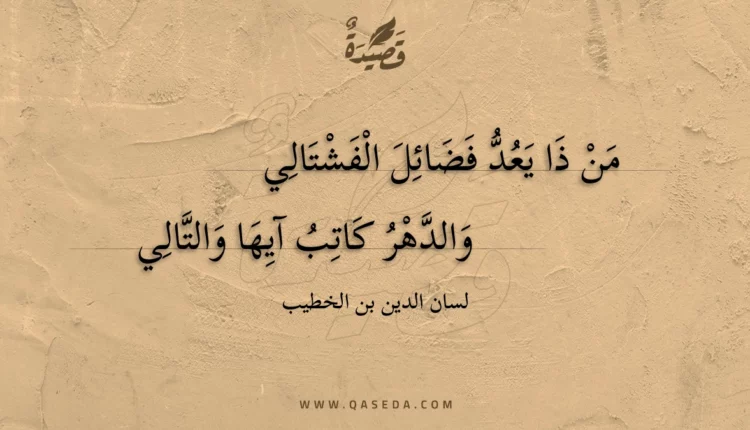 قَصِيدَةٌ
مَنْ ذَا يَعُدُّ فَضَائِلَ الْفَشْتَالِي
وَالدَّهْرُ كَاتِبُ آيِهَا وَالتَّالِي
لسان الدين بن الخطيب
WWW.QASEDA.COM